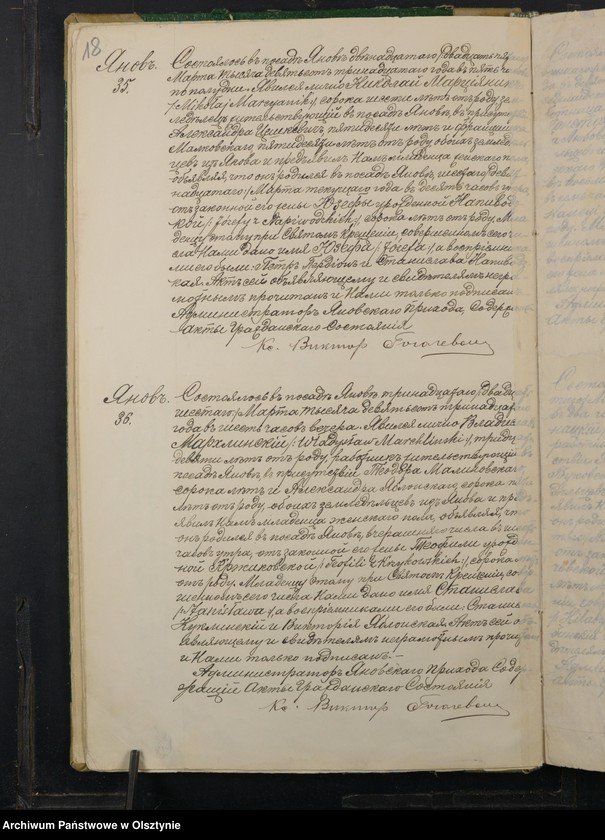 18
Яновъ.
35.
Состоялось въ посадѣ Яновѣ двѣнадцатаго /двадцать пя
Марта тысяча девятьсотъ тринадцатаго года въ пять ч
по полудни. Явился лично Николай Марцяникъ
/Mikołaj Marcyanik/, сорока шести лѣтъ отъ роду, зе
жительствующій въ посадѣ Яновѣ, въ присут
Александра пятидесяти лѣтъ и Франца
Малковскаго пятидесяти лѣтъ отъ роду, обоихъ землед
цевъ изъ Янова и предъявилъ Намъ младенца женскаго п
объявляя, что онъ родился въ посадѣ Яновѣ, шестаго /девя
надцатаго/ Марта текущаго года въ десять часовъ
отъ законной его жены Юзефы урожденной Напивод
кой /Józefy z Napiwodzkich/, сорока лѣтъ отъ роду. Мла
денцу этому при Святомъ Крещеніи, совершенномъ сего ч
сла Нами дано имя Юзефа /Józefa/, а воспріемни
ми его были: Петръ и Станислава Напив
кая. Актъ сей объявляющему и свидѣтелямъ негра
мотнымъ прочитанъ и Нами только подписанъ
Администраторъ Яновскаго Прихода, Содер
Акты Гражданскаго Состоянія
Кс. Виктор
Яновъ.
36.
Состоялось въ посадѣ Яновѣ тринадцатаго /двадц
шестаго/ Марта тысяча девятьсотъ тринадцат
года въ шесть часовъ вечера. Явился лично Владис
Мархлинскій /Władysław Marchlinski/, тридц
девяти лѣтъ отъ роду, работникъ жительствующій
посадѣ Яновѣ, въ присутствіи Малиновскаго
сорока лѣтъ и Александра Яблонскаго, сорока п
лѣтъ отъ роду, обоихъ земледѣльцевъ изъ Янова и пре
явилъ Намъ младенца женскаго пола, объявляя, чт
онъ родился въ посадѣ Яновѣ, вчерашняго числа въ ше
часовъ утра, отъ законной его жены Теофили урожд
ной Кржиковской /Teofili z Krzykowskich/, сорока
отъ роду. Младенцу этому при Святомъ Крещеніи, со
шенномъ сего числа Нами дано имя Станислава
/Stanisława/, а воспріемниками его были: Станис
и Викторія Яблонская. Актъ сей о
являющему и свидѣтелямъ неграмотнымъ прочи
и Нами только подписанъ.—
Администраторъ Яновскаго Прихода Соде
жащій Акты Гражданскаго Состоянія
Кс. Виктор
Archiwum Państwowe w Olsztynie